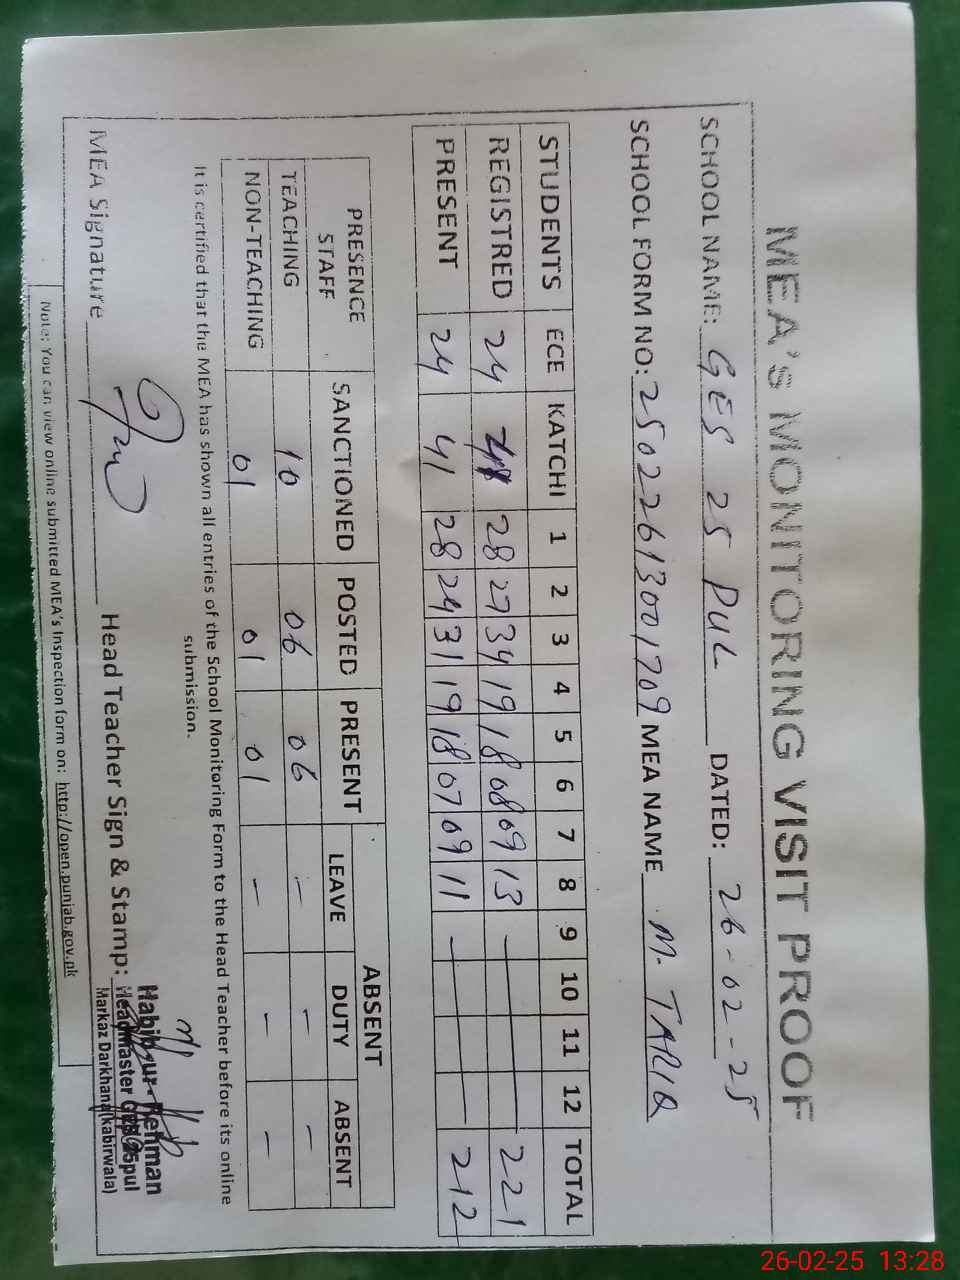 MEA's MONITORING VISIT PROOF
SCHOOL NAME: GES 25 PUL DATED: 26-02-25
SCHOOL FORM NO: 25022613001709 MEA NAME M. TARIQ
STUDENTS ECE KATCHI 1 2 3 4 5 6 7 8 9 10 11 12 TOTAL
REGISTRED 24 28 27 34 19 18 08 09 13 221
PRESENT 24 41 28 24 31 19 18 07 09 11 212
PRESENCE STAFF SANCTIONED POSTED PRESENT ABSENT
LEAVE DUTY ABSENT
TEACHING 10 06 06 – – –
NON-TEACHING 01 01 01 – – –
It is certified that the MEA has shown all entries of the School Monitoring Form to the Head Teacher before its online
submission.
MEA Signature Head Teacher Sign & Stamp:
Habib-ur-Rehman
Headmaster GES 25pul
Markaz Darkhana(kabirwala)
Note: You can view online submitted MEA's Inspection form on: http://open.punjab.gov.pk
26-02-25 13:28